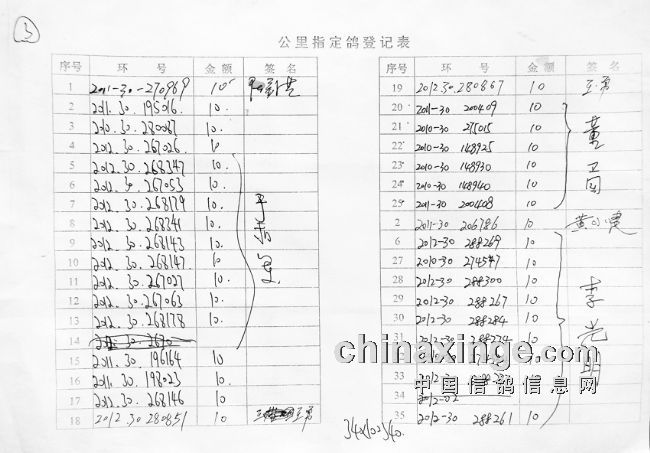 3
公里指定鸽登记表
序号 环号 金额 签名
1 2011-30-270989 10
2 2011.30.195016. 10.
3 2010.30.280087 10.
4 2012.30.267026. 10
5 2012.30.268347 10.
6 2012.30.267053 10.
7 2012.30.268179 10.
8 2012.30.268341 10.
9 2012.30.268143 10.
10 2012.30.268147. 10
11 2012.30.267027 10.
12 2012.30.267063 10.
13 2012.30.268178 10.
14
15 2011.30.196164 10
16 2011.30.198023 10.
17 2012.30.268146 10
18 2012.30 280851 10 王勇
序号 环号 金额 签名
19 2012.30.280867 10 王勇
20 2011-30 200409 10
21 2010-30 275015 10
22 2010-30 148925 10
23 2010-30 148930 10
24 2010-30 148940 10
25 2011-30 200408 10
董卫国
2 2011-30 206786 10
6 2012-30 288269 10
27 2010-30 274547 10
28 2012-30 288300 10
29 2012-30 288267 10
30 2012-30 288284 10
31 2012-30 288274 10
李光明
33
34 2012-02
35 2012-30 288261 10
chinaxinge.com
中国信鸽信息网